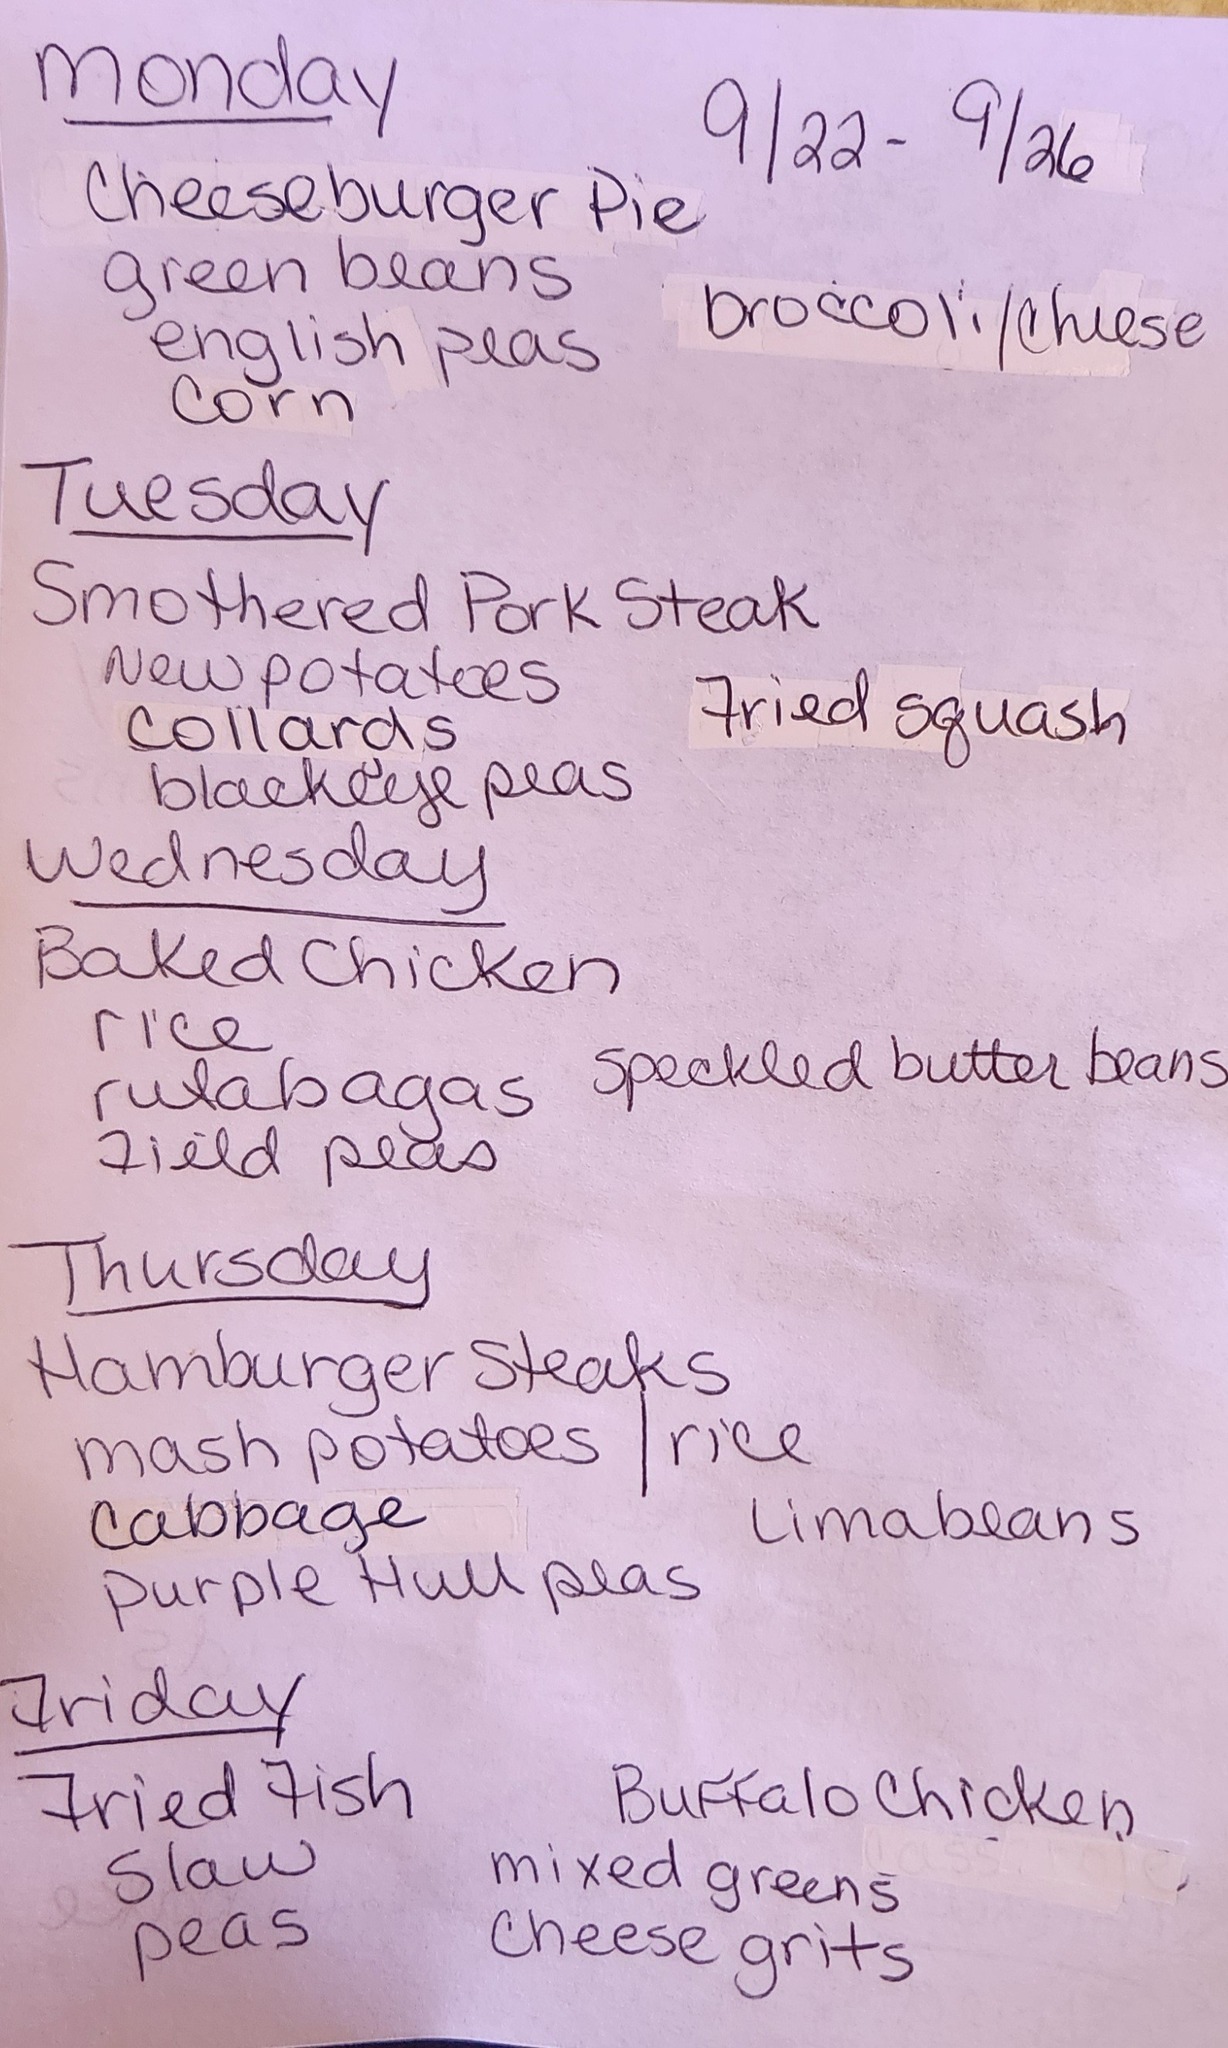 Monday
9/22 - 9/26
Cheeseburger Pie
green beans
broccoli/cheese
english peas
corn
Tuesday
Smothered Pork Steak
New potatoes
Fried squash
collards
blackeye peas
Wednesday
Baked Chicken
rice
speckled butter beans
rutabagas
Field peas
Thursday
Hamburger Steaks
mash potatoes / rice
cabbage
Lima beans
purple Hull peas
Friday
Fried Fish
Buffalo Chicken
Slaw
mixed greens
peas
cheese grits